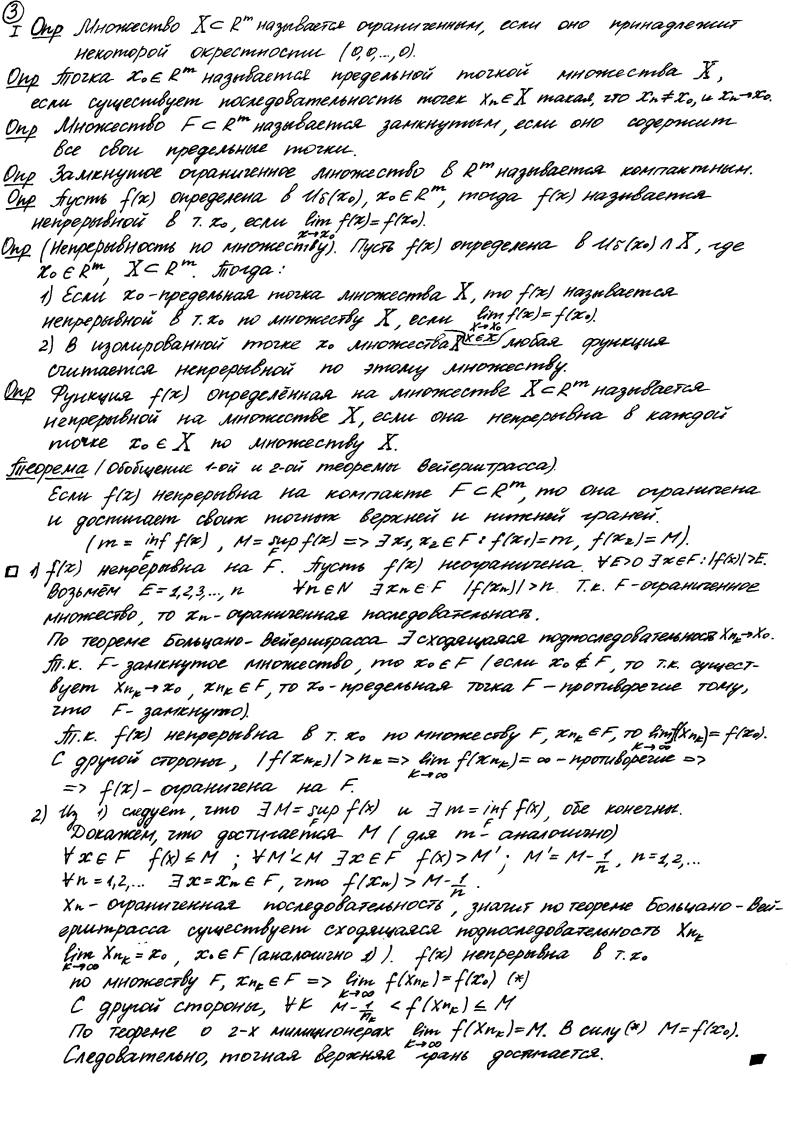 ③
I Опр Множество X ⊂ R^m называется ограниченным, если оно принадлежит
некоторой окрестности (0,0,...,0).
Опр Точка x₀ ∈ R^m называется предельной точкой множества X,
если существует последовательность точек xₙ ∈ X такая, что xₙ ≠ x₀, и xₙ → x₀.
Опр Множество F ⊂ R^m называется замкнутым, если оно содержит
все свои предельные точки.
Опр Замкнутое ограниченное множество в R^m называется компактным.
Опр Пусть f(x) определена в U_δ(x₀), x₀ ∈ R^m, тогда f(x) называется
непрерывной в т. x₀, если lim_{x→x₀} f(x) = f(x₀).
Опр (Непрерывность по множеству). Пусть f(x) определена в U_δ(x₀) ∧ X, где
x₀ ∈ R^m, X ⊂ R^m. Тогда:
1) Если x₀ - предельная точка множества X, то f(x) называется
непрерывной в т. x₀ по множеству X, если lim_{x→x₀, x∈X} f(x) = f(x₀).
2) В изолированной точке x₀ множества X любая функция
считается непрерывной по этому множеству.
Опр Функция f(x) определённая на множестве X ⊂ R^m называется
непрерывной на множестве X, если она непрерывна в каждой
точке x₀ ∈ X по множеству X.
Теорема (Обобщение 1-ой и 2-ой теоремы Вейерштрасса).
Если f(x) непрерывна на компакте F ⊂ R^m, то она ограничена
и достигает своих точных верхней и нижней граней.
(m = inf_F f(x), M = sup_F f(x) => ∃ x₁, x₂ ∈ F : f(x₁) = m, f(x₂) = M).
□ 1) f(x) непрерывна на F. Пусть f(x) неограничена ∀E>0 ∃x∈F : |f(x)|>E.
Возьмём E = 1,2,3,..., n ∀n∈N ∃xₙ∈F |f(xₙ)|>n. Т.к. F - ограниченное
множество, то xₙ - ограниченная последовательность.
По теореме Больцано-Вейерштрасса ∃ сходящаяся подпоследовательность x_{n_k} → x₀.
Т.к. F - замкнутое множество, то x₀ ∈ F (если x₀ ∉ F, то т.к. сущест-
вует x_{n_k} → x₀, x_{n_k} ∈ F, то x₀ - предельная точка F - противоречие тому,
что F - замкнуто).
Т.к. f(x) непрерывна в т. x₀ по множеству F, x_{n_k} ∈ F, то lim_{k→∞} f(x_{n_k}) = f(x₀).
С другой стороны, |f(x_{n_k})| > n_k => lim_{k→∞} f(x_{n_k}) = ∞ - противоречие =>
=> f(x) - ограничена на F.
2) Из 1) следует, что ∃ M = sup_F f(x) и ∃ m = inf_F f(x), обе конечны.
Докажем, что достигается M (для m - аналогично)
∀x∈F f(x) ≤ M ; ∀M'<M ∃x∈F f(x) > M' ; M' = M - 1/n, n = 1,2,...
∀n = 1,2,... ∃x = xₙ ∈ F, что f(xₙ) > M - 1/n.
xₙ - ограниченная последовательность, значит по теореме Больцано-Вей-
ерштрасса существует сходящаяся подпоследовательность x_{n_k}
lim_{k→∞} x_{n_k} = x₀, x₀ ∈ F (аналогично 1)). f(x) непрерывна в т. x₀
по множеству F, x_{n_k} ∈ F => lim_{k→∞} f(x_{n_k}) = f(x₀) (*)
С другой стороны, ∀k M - 1/n_k < f(x_{n_k}) ≤ M
По теореме о 2-х милиционерах lim_{k→∞} f(x_{n_k}) = M. В силу (*) M = f(x₀).
Следовательно, точная верхняя грань достигается. ■